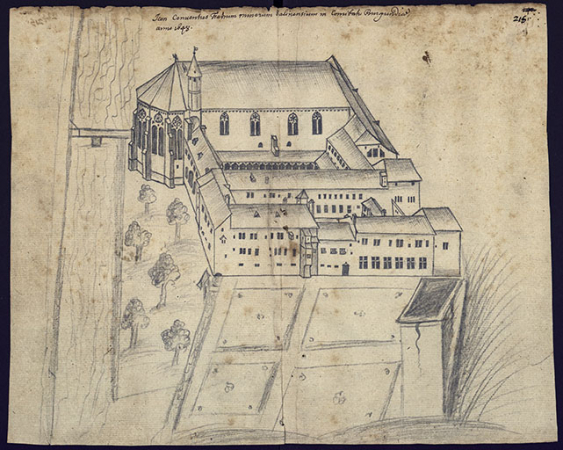 Icon Conventus Fratrum minorum Salinensium in Comitatu Burgundiæ
anno 1648.
218.